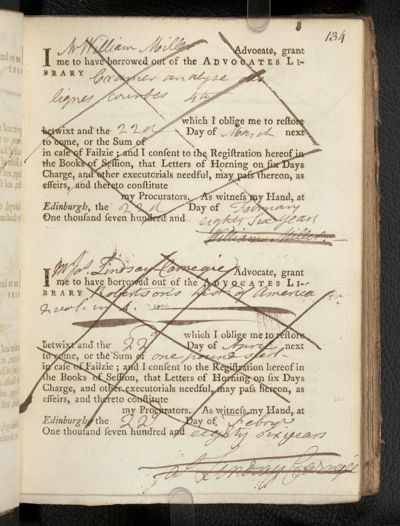 134
I Mr William Miller Advocate, grant
me to have borrowed out of the ADVOCATES LI-
BRARY Cramer analyse des
lignes courbes 4to
which I oblige me to restore
betwixt and the 22d Day of March next
to come, or the Sum of
in case of Failzie; and I consent to the Registration hereof in
the Books of Session, that Letters of Horning on six Days
Charge, and other executorials needful, may pass thereon, as
effeirs, and thereto constitute
my Procurators. As witness my Hand, at
Edinburgh, the 22d Day of February
One thousand seven hundred and
eighty Six Years
William Miller
I Lindsay Carnegie Advocate, grant
me to have borrowed out of the ADVOCATES LI-
BRARY Robertson's Hist of America
2 vol. in
which I oblige me to restore
betwixt and the 22d Day of April next
to come, or the Sum of one pound
in case of Failzie; and I consent to the Registration hereof in
the Books of Session, that Letters of Horning on six Days
Charge, and other executorials needful, may pass hereon, as
effeirs, and thereto constitute
my Procurators. As witness my Hand, at
Edinburgh the 22d Day of
One thousand seven hundred and eighty six years
Lindsay Carnegie